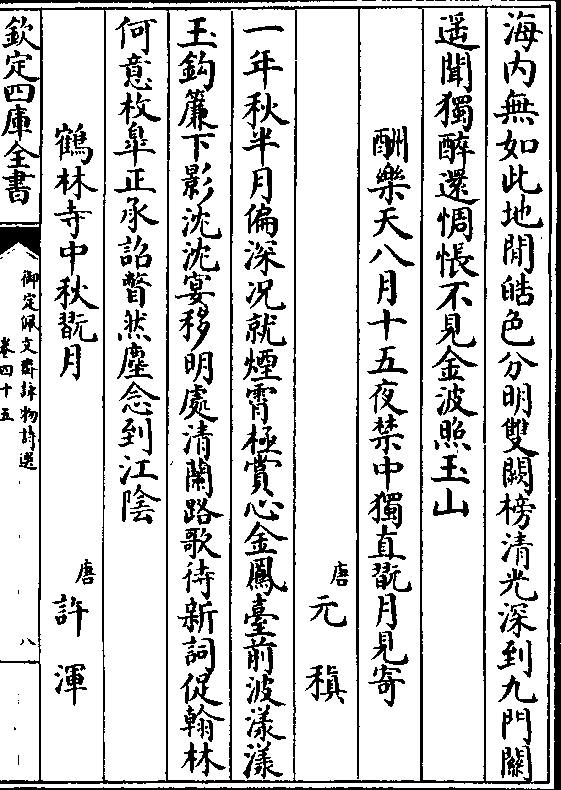 海内無如此地閒皓色分明雙闕榜清光深到九門關
遥聞獨醉還惆悵不見金波照玉山
酬樂天八月十五夜禁中獨直翫月見寄
唐 元稹
一年秋半月偏深况就煙霄極賞心金鳳臺前波漾漾
玉鈎簾下影沈沈宴移明處清蘭路歌待新詞促翰林
何意枚臯正承詔瞥然塵念到江陰
鶴林寺中秋翫月
唐 許渾
欽定四庫全書
御定佩文齋詠物詩選
卷四十五
八